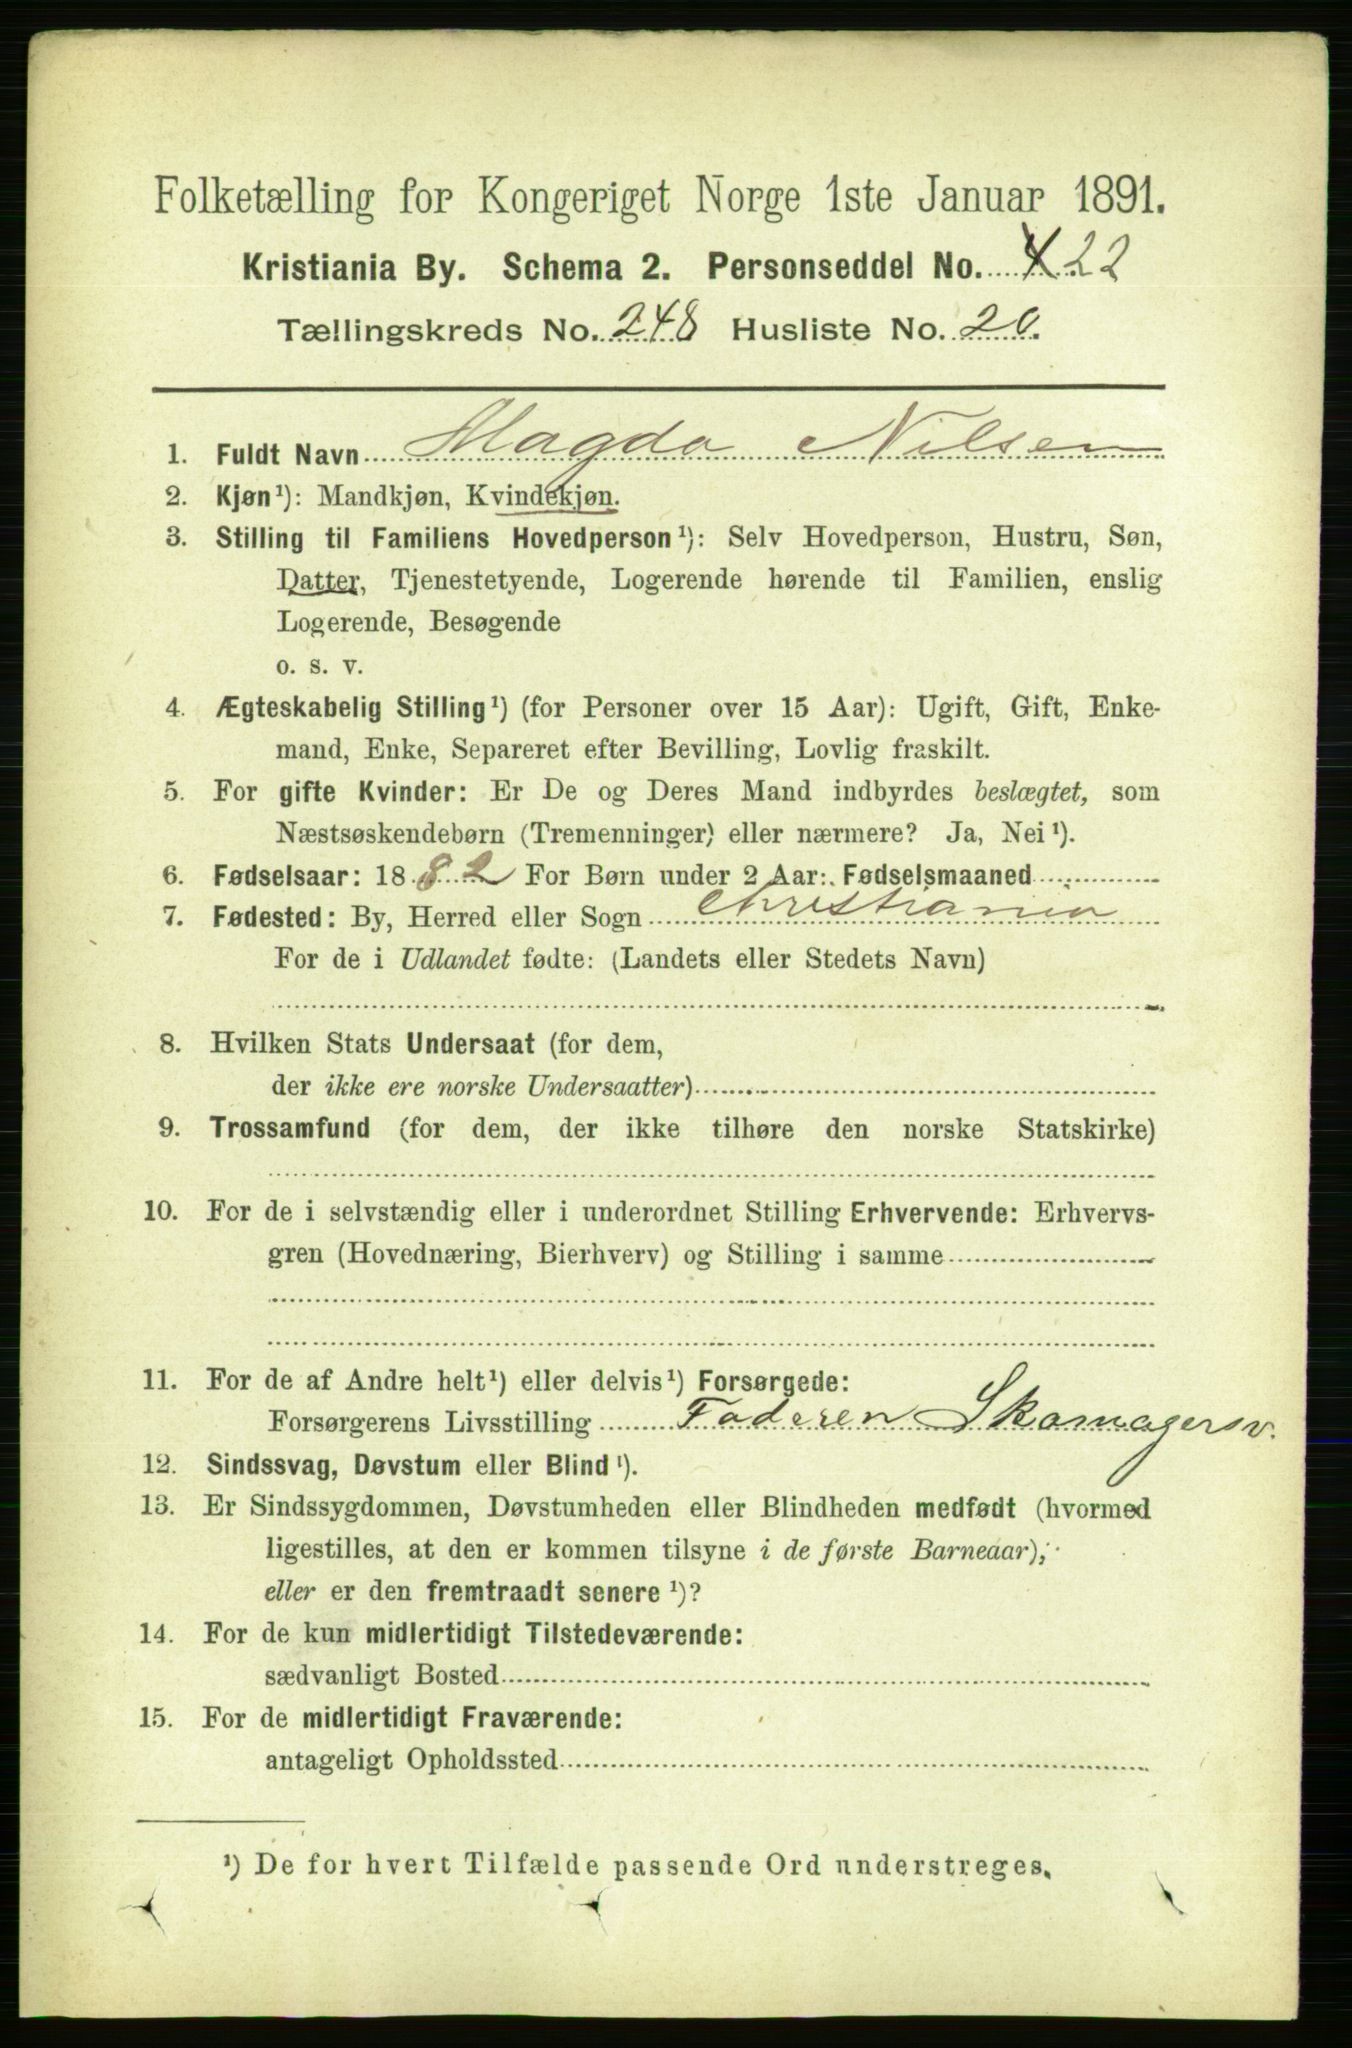 Folketælling for Kongeriget Norge 1ste Januar 1891.
Kristiania By. Schema 2. Personseddel No. 4 22
Tællingskreds No. 248 Husliste No. 20.
1. Fuldt Navn Magda Nilsen
2. Kjøn¹): Mandkjøn, Kvindekjøn.
3. Stilling til Familiens Hovedperson¹): Selv Hovedperson, Hustru, Søn,
Datter, Tjenestetyende, Logerende hørende til Familien, enslig
Logerende, Besøgende
o. s. v.
4. Ægteskabelig Stilling¹) (for Personer over 15 Aar): Ugift, Gift, Enke-
mand, Enke, Separeret efter Bevilling, Lovlig fraskilt.
5. For gifte Kvinder: Er De og Deres Mand indbyrdes beslægtet, som
Næstsøskendebørn (Tremenninger) eller nærmere? Ja, Nei¹).
6. Fødselsaar: 1882 For Børn under 2 Aar: Fødselsmaaned
7. Fødested: By, Herred eller Sogn Christiania
For de i Udlandet fødte: (Landets eller Stedets Navn)
8. Hvilken Stats Undersaat (for dem,
der ikke ere norske Undersaatter)
9. Trossamfund (for dem, der ikke tilhøre den norske Statskirke)
10. For de i selvstændig eller i underordnet Stilling Erhvervende: Erhvervs-
gren (Hovednæring, Bierhverv) og Stilling i samme
11. For de af Andre helt¹) eller delvis¹) Forsørgede:
Forsørgerens Livsstilling Faderen Skomagersv.
12. Sindssvag, Døvstum eller Blind¹).
13. Er Sindssygdommen, Døvstumheden eller Blindheden medfødt (hvormed
ligestilles, at den er kommen tilsyne i de første Barneaar);
eller er den fremtraadt senere¹)?
14. For de kun midlertidigt Tilstedeværende:
sædvanligt Bosted
15. For de midlertidigt Fraværende:
antageligt Opholdssted
¹) De for hvert Tilfælde passende Ord understreges.